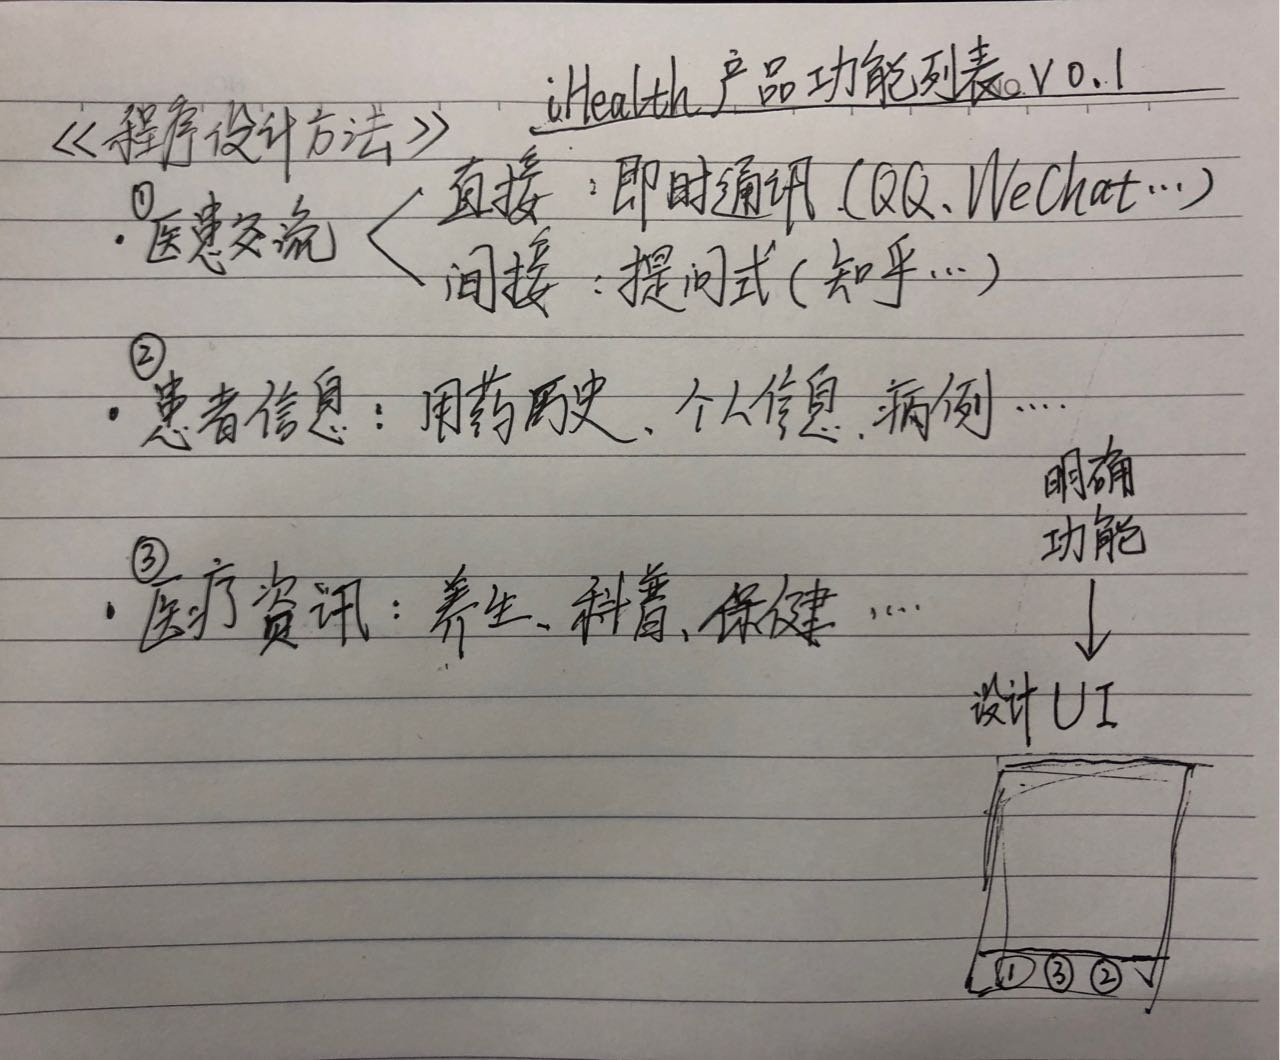 iHealth 产品功能列表 V0.1
《程序设计方法》
①
·医患交流 直接：即时通讯（QQ、WeChat…）
间接：提问式（知乎…）
②
·患者信息：用药历史、个人信息、病例….
③
·医疗资讯：养生、科普、保健….
明确
功能
↓
设计UI
① ③ ②